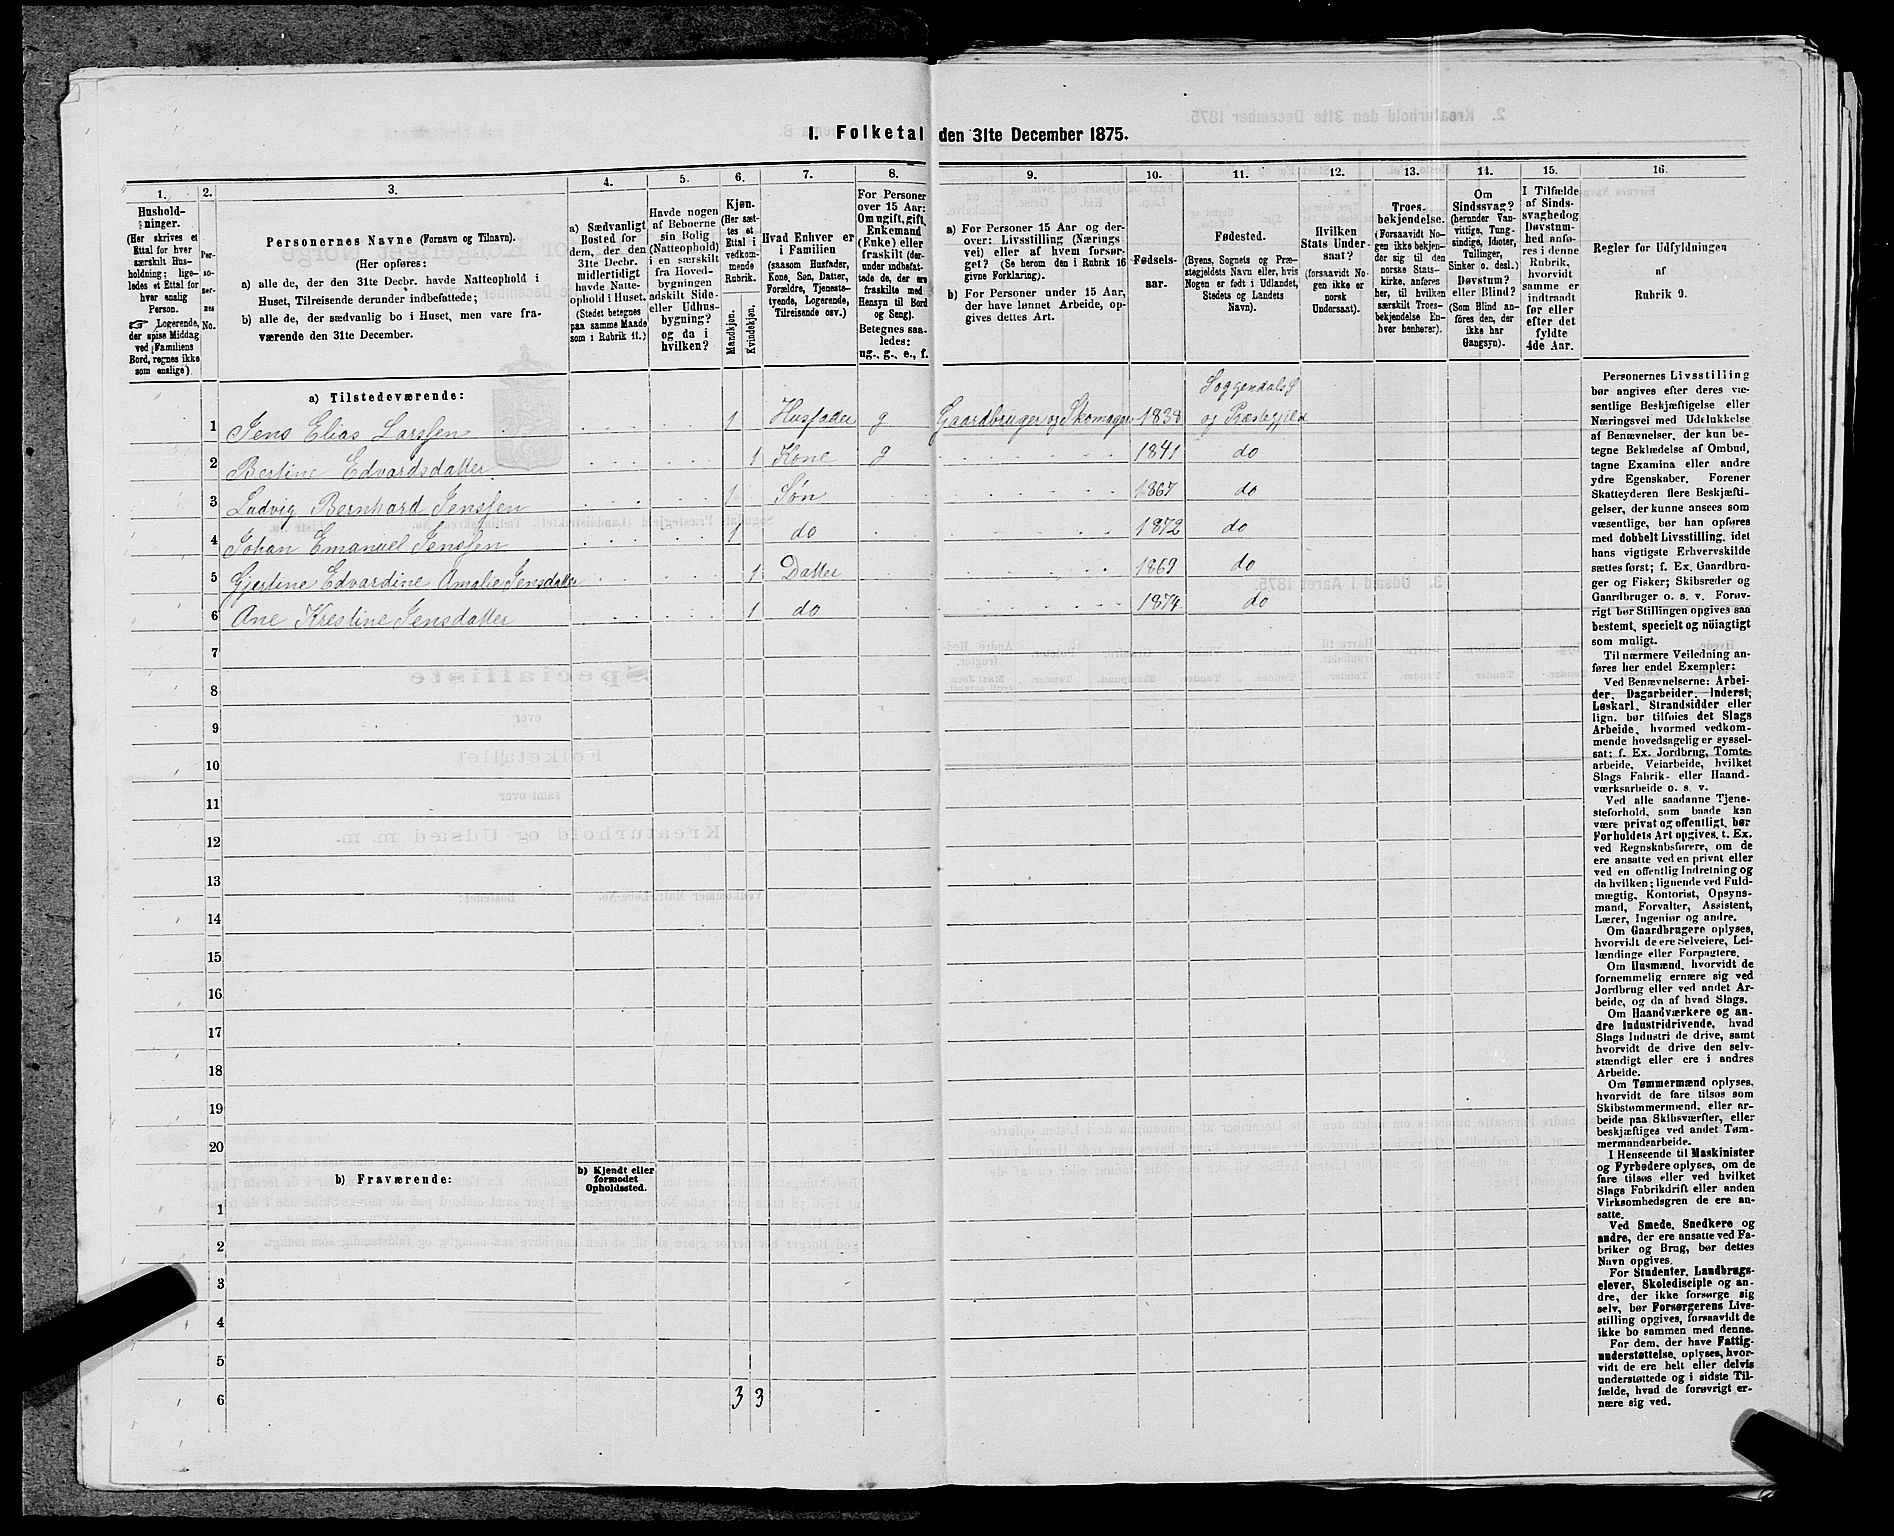 1. Folketal den 31te December 1875.
1.
2.
3.
4.
5.
6.
7.
8.
9.
10.
11.
12.
13.
14.
15.
16.
Hushold-
ninger.
(Her skrives et
Ettal for hver
særskilt Hus-
holdning; lige-
ledes et Ettal for
hver enslig
Person.
☞ Logerende,
der spise Middag
ved Familiens
Bord, regnes ikke
som enslige).
Per-
so-
ner-
nes
No.
Personernes Navne (Fornavn og Tilnavn).
(Her opføres:
a) alle de, der den 31te Decbr. havde Natteophold i
Huset, Tilreisende derunder indbefattede;
b) alle de, der sædvanlig bo i Huset, men vare fra-
værende den 31te December.
a) Sædvanligt
Bosted for
dem, der den
31te Decbr.
midlertidigt
havde Natte-
ophold i Huset.
(Stedet betegnes
paa samme Maade
som i Rubrik 11.)
Havde nogen
af Beboerne
sin Bolig
(Natteophold)
i en særskilt
fra Hoved-
bygningen
adskilt Side-
eller Udhus-
bygning?
og da i
hvilken?
Kjøn.
(Her sæt-
tes et
Ettal i
vedkom-
mende
Rubrik.
Mandkjøn.
Kvindekjøn.
Hvad Enhver er
i Familien
(saasom Husfader,
Kone, Søn, Datter,
Forældre, Tjeneste-
tyende, Logerende,
Tilreisende osv.)
For Personer
over 15 Aar:
Om ugift, gift,
Enkemand
(Enke) eller
fraskilt (der-
under indbefat-
tede de, der ere
fraskilte med
Hensyn til Bord
og Seng).
Betegnes saa-
ledes:
ug., g., e., f.
a) For Personer 15 Aar og der-
over: Livsstilling (Nærings-
vei) eller af hvem forsør-
get? (Se herom den i Rubrik 16
givne Forklaring).
b) For Personer under 15 Aar,
der have lønnet Arbeide, op-
gives dettes Art.
Fødsels-
aar.
Fødested.
(Byens, Sognets og Præ-
stegjeldets Navn eller, hvis
Nogen er født i Udlandet,
Stedets og Landets
Navn).
Hvilken
Stats Under-
saat?
(forsaavidt No-
gen ikke er
norsk
Undersaat).
Troes-
bekjendelse.
(Forsaavidt No-
gen ikke bekjen-
der sig til den
norske Stats-
kirke, anføres
her, til hvilken
særskilt Troes-
bekjendelse En-
hver henhører).
Om
Sindssvag?
(herunder Van-
vittige, Tung-
sindige, Idioter,
Tullinger,
Sinker o. desl.)
Døvstum?
eller Blind?
(Som Blind an-
føres den, der
ikke har
Gangsyn).
I Tilfælde
af Sinds-
svaghed og
Døvstum-
hed anfø-
res i denne
Rubrik,
hvorvidt
samme er
indtraadt
før eller
efter det
fyldte
4de Aar.
Regler for Udfyldningen
af
Rubrik 9.
a) Tilstedeværende:
Soggendals S
1 Jens Elias Larssen 1 Husfader g Gaardbruger og Skomager 1838 og Præstegjeld
2 Bertine Edvardsdatter 1 Kone g 1841 do
3 Ludvig Bernhard Jenssen 1 Søn 1867 do
4 Johan Emanuel Jenssen 1 do 1872 do
5 Gjertine Edvardine Amalie Jensdatter 1 Datter 1869 do
6 Ane Krestine Jensdatter 1 do 1874 do
7
8
9
10
11
12
13
14
15
16
17
18
19
20
b) Fraværende:
b) Kjendt eller
formodet
Opholdssted.
1
2
3
4
5
6
3 3
Personernes Livsstilling
bør angives efter deres væ-
sentlige Beskjæftigelse eller
Næringsvei med Udelukkelse
af Benævnelser, der kun be-
tegne Beklædelse af Ombud,
tagne Examina eller andre
ydre Egenskaber. Forener
Skatteyderen flere Beskjæfti-
gelser, der kunne ansees som
væsentlige, bør han opføres
med dobbelt Livsstilling, idet
hans vigtigste Erhvervskilde
sættes først; f. Ex. Gaardbru-
ger og Fisker; Skibsreder og
Gaardbruger o. s. v. Forøv-
rigt bør Stillingen opgives saa
bestemt, specielt og nöiagtigt
som muligt.
Til nærmere Veiledning an-
føres her endel Exempler:
Ved Benævnelserne: Arbei-
der, Dagarbeider, Inderst,
Løskarl, Strandsidder eller
lign. bør tilføies det Slags
Arbeide, hvormed vedkom-
mende hovedsagelig er syssel-
sat; f. Ex. Jordbrug, Tomte-
arbeide, Veiarbeide, hvilket
Slags Fabrik- eller Haand-
værksarbeide o. s. v.
Ved alle saadanne Tjene-
steforhold, som baade kan
være privat og offentligt, bør
Forholdets Art opgives, t. Ex.
ved Regnskabsførere, om de
ere ansatte ved en privat eller
ved en offentlig Indretning og
da hvilken; lignende ved Fuld-
mægtig, Kontorist, Opsyns-
mand, Forvalter, Assistent,
Lærer, Ingeniør og andre.
Om Gaardbrugere oplyses,
hvorvidt de ere Selveiere, Lei-
lændinge eller Forpagtere.
Om Husmænd, hvorvidt de
fornemmelig ernære sig ved
Jordbrug eller ved andet Ar-
beide, og da af hvad Slags.
Om Haandværkere og an-
dre Industridrivende, hvad
Slags Industri de drive, samt
hvorvidt de drive den selv-
stændigt eller ere i andres
Arbeide.
Om Tømmermænd oplyses,
hvorvidt de fare tilsøs som
Skibstømmermænd, eller ar-
beide paa Skibsværfter, eller
beskjæftiges ved andet Tøm-
mermandsarbeide.
I Henseende til Maskinister
og Fyrbødere oplyses, om de
fare tilsøs eller ved hvilket
Slags Fabrikdrift eller anden
Virksomhedsgren de ere an-
satte.
Ved Smede, Snedkere og
andre, der ere ansatte ved Fa-
briker og Brug, bør dettes
Navn opgives.
For Studenter, Landbrugs-
elever, Skoledisciple og an-
dre, der ikke forsørge sig
selv, bør Forsørgerens Livs-
stilling opgives, forsaavidt de
ikke bo sammen med denne.
For dem, der have Fattig-
understøttelse, oplyses, hvor-
vidt de ere helt eller delvis
understøttede og i sidste Til-
fælde, hvad de forøvrigt er-
nære sig ved.